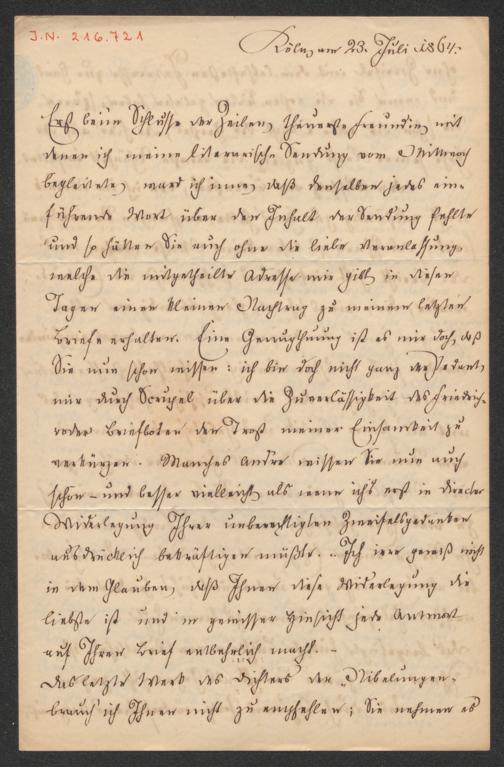 J.N. 216.721
Köln, am 23. Juli 1864.
Erst beim Schlusse der Zeilen, theuerste Freundin, mit
denen ich meine literarische Sendung vom Mittwoch
begleitete, ward ich inne, daß denselben jedes ein-
führende Wort über den Inhalt der Sendung fehlte
und so hätten Sie auch ohne die liebe Veranlassung,
welche die mitgetheilte Adresse mir gibt, in diesen
Tagen einen kleinen Nachtrag zu meinem letzten
Briefe erhalten. Eine Genugthuung ist es mir doch, daß
Sie nun schon wissen: ich bin doch nicht ganz der Pedant,
mir durch Scrupel über die Zuverlässigkeit des Friedrich-
roder Briefboten den Trost meiner Einsamkeit zu
verkürzen. Manches andre wissen Sie nun auch
schon – und besser vielleicht, als wenn ich's erst in directer
Widerlegung Ihrer unberechtigten Zweifelsgedanken
ausdrücklich bekräftigen müßte. .. Ich irre gewiß nicht
in dem Glauben, daß Ihnen diese Widerlegung die
liebste ist und in gewisser Hinsicht jede Antwort
auf Ihren Brief entbehrlich macht. –
Das letzte Werk des Dichters der „Nibelungen"
brauch' ich Ihnen nicht zu empfehlen; Sie nehmen es